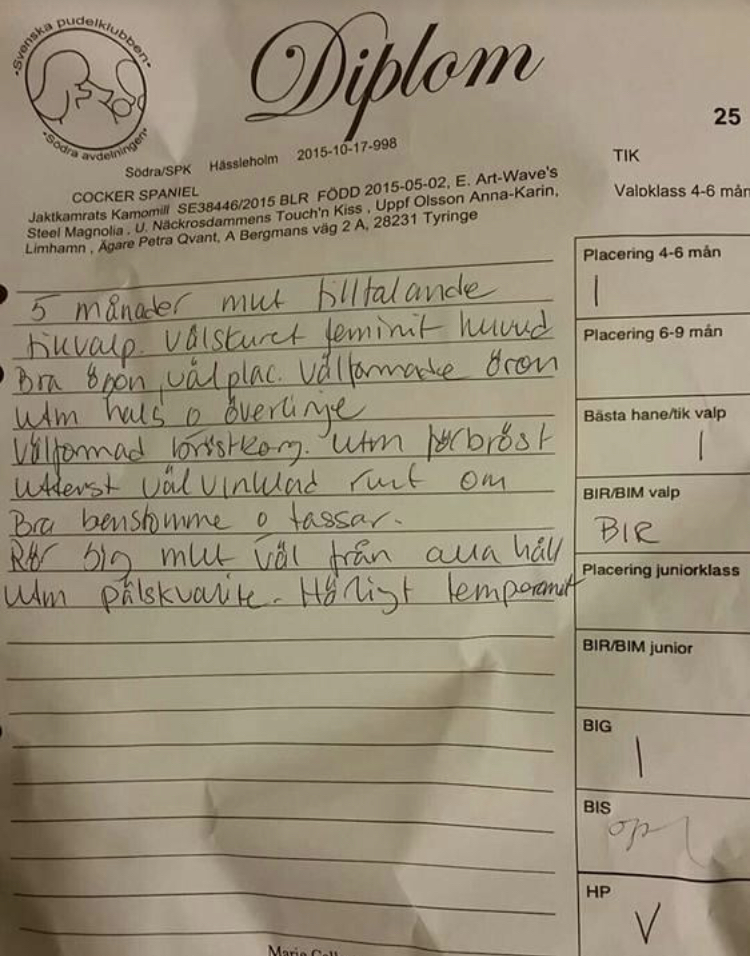 •Svenska pudelklubben•
•Södra avdelningen•
Diplom
25
Södra/SPK Hässleholm 2015-10-17-998
TIK
Valpklass 4-6 mån
COCKER SPANIEL
Jaktkamrats Kamomill SE38446/2015 BLR FÖDD 2015-05-02, E. Art-Wave's
Steel Magnolia , U. Näckrosdammens Touch'n Kiss , Uppf Olsson Anna-Karin,
Limhamn , Ägare Petra Qvant, A Bergmans väg 2 A, 28231 Tyringe
5 månader mkt tilltalande
tikvalp. Välskuret feminit huvud
Bra ögon, välplac. välformade öron
Utm hals o överlinje
Välformad bröstkorg. Utm förbröst
Ytterst väl vinklad runt om
Bra benstomme o tassar.
Rör sig mkt väl från alla håll
Utm pälskvalite. Härligt temperamet
Placering 4-6 mån
1
Placering 6-9 mån
Bästa hane/tik valp
1
BIR/BIM valp
BIR
Placering juniorklass
BIR/BIM junior
BIG
1
BIS
HP
V